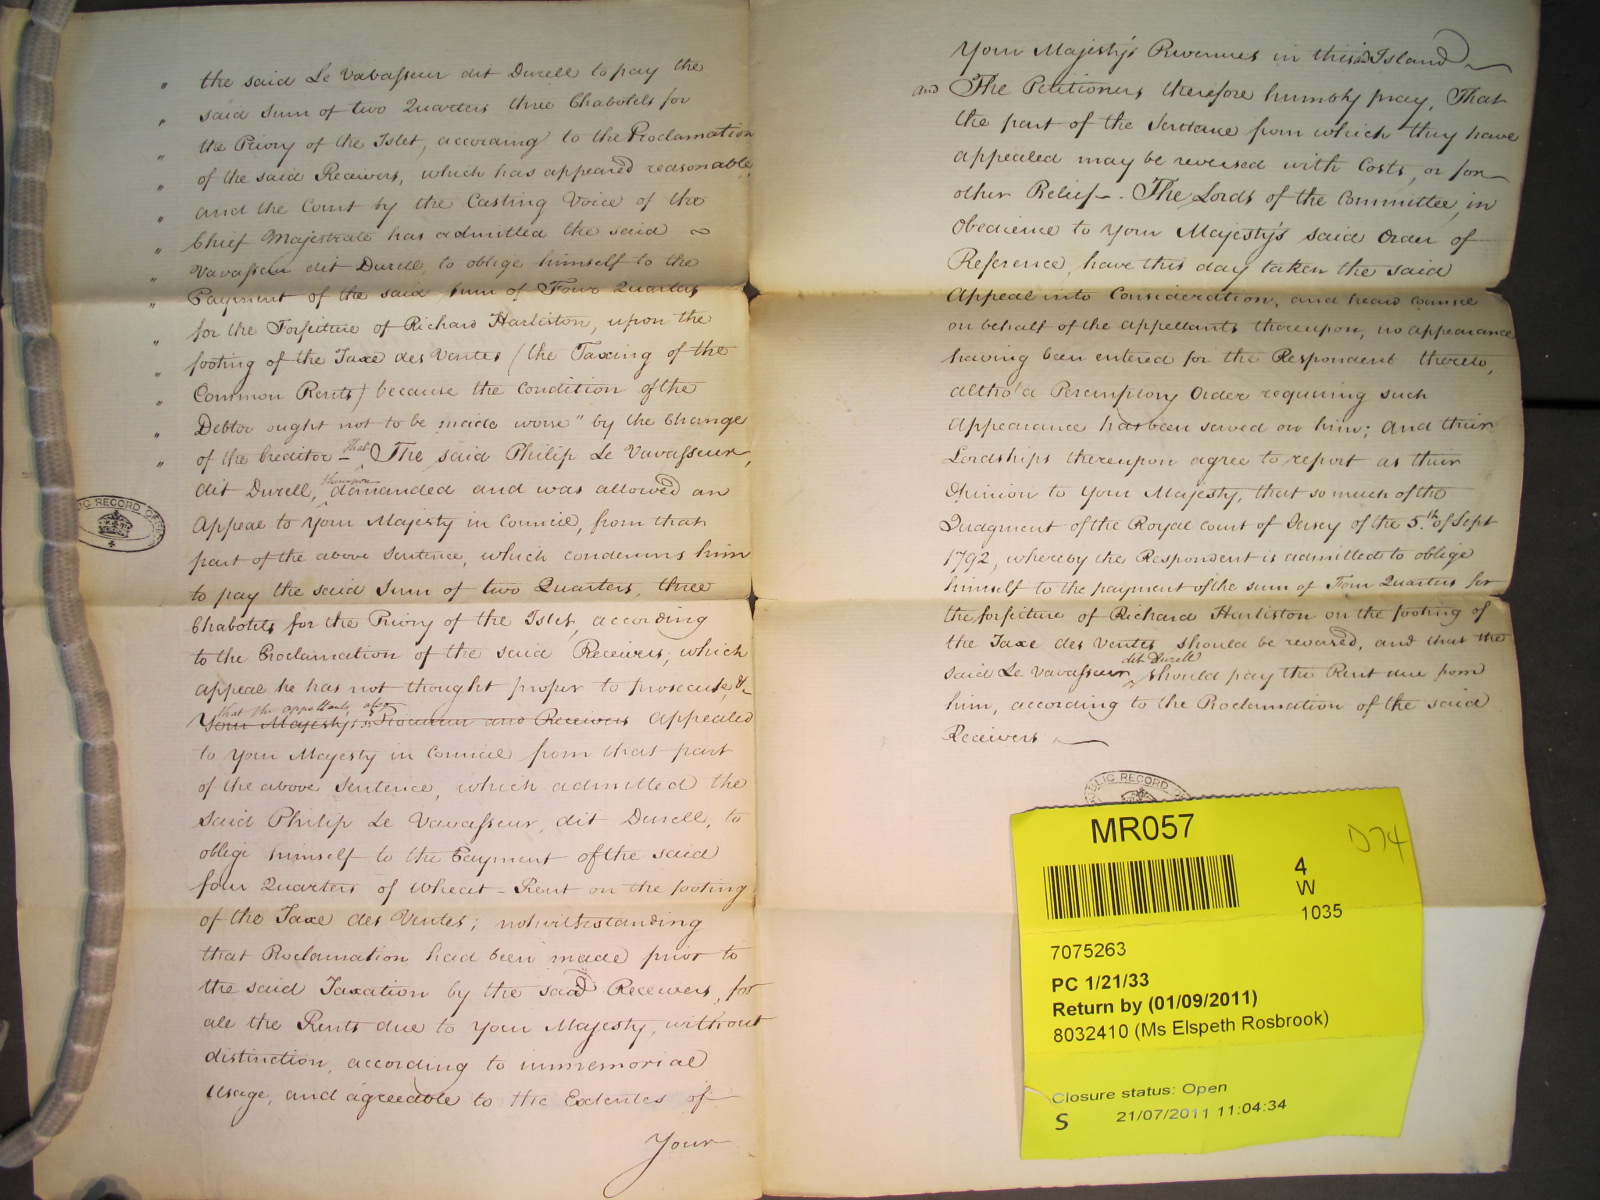 " the said Le Vavasseur dit Durell to pay the
" said Sum of two Quarters three Chabotels for
" the Priory of the Islet, according to the Proclamation
" of the said Receivers, which has appeared reasonable,
" and the Court by the Casting Voice of the
" Chief Majestrate has admitted the said
" Vavasseur dit Durell, to oblige himself to the
" Payment of the said Sum of Four Quarters
" for the Forfeiture of Richard Harliston, upon the
" footing of the Taxe des Ventes (the Taxing of the
" Common Rents) because the Condition of the
" Debtor ought not to be made worse" by the Change
" of the Creditor – that The said Philip Le Vavasseur,
dit Durell, thereupon demanded and was allowed an
Appeal to Your Majesty in Council, from that
part of the above Sentence, which condemns him
to pay the said Sum of two Quarters, three
Chabotels for the Priory of the Islet, according
to the Proclamation of the said Receivers, which
appeal he has not thought proper to prosecute, &
that the appellants also
Your Majesty's Procureur and Receivers appealed
to Your Majesty in Council from that part
of the above Sentence, which admitted the
said Philip Le Vavasseur, dit Durell, to
oblige himself to the Payment of the said
four Quarters of Wheat-Rent on the footing
of the Taxe des Ventes; notwithstanding
that Proclamation had been made prior to
the said Taxation by the said Receivers, for
all the Rents due to Your Majesty, without
distinction, according to immemorial
Usage, and agreeable to the Extentes of
Your
PUBLIC RECORD OFFICE
Your Majesty's Revenues in this Island
and The Petitioners therefore humbly pray, That
the part of the Sentence from which they have
appealed may be reversed with Costs, or for
other Relief. The Lords of the Committee, in
Obedience to Your Majesty's said Order of
Reference, have this day taken the said
Appeal into Consideration, and heard Counsel
on behalf of the appellants thereupon, no appearance
having been entered for the Respondent thereto,
altho' a Peremptory Order requiring such
Appearance has been served on him; And their
Lordships thereupon agree to report as their
Opinion to Your Majesty, that so much of the
Judgment of the Royal Court of Jersey of the 5.th of Sept
1792, whereby the Respondent is admitted to oblige
himself to the payment of the sum of Four Quarters for
the forfeiture of Richard Harliston on the footing of
the Taxe des Ventes should be reversed, and that the
said Le Vavasseur dit Durell should pay the Rent due from
him, according to the Proclamation of the said
Receivers
PUBLIC RECORD
MR057
D74
4
W
1035
7075263
PC 1/21/33
Return by (01/09/2011)
8032410 (Ms Elspeth Rosbrook)
Closure status: Open
S 21/07/2011 11:04:34